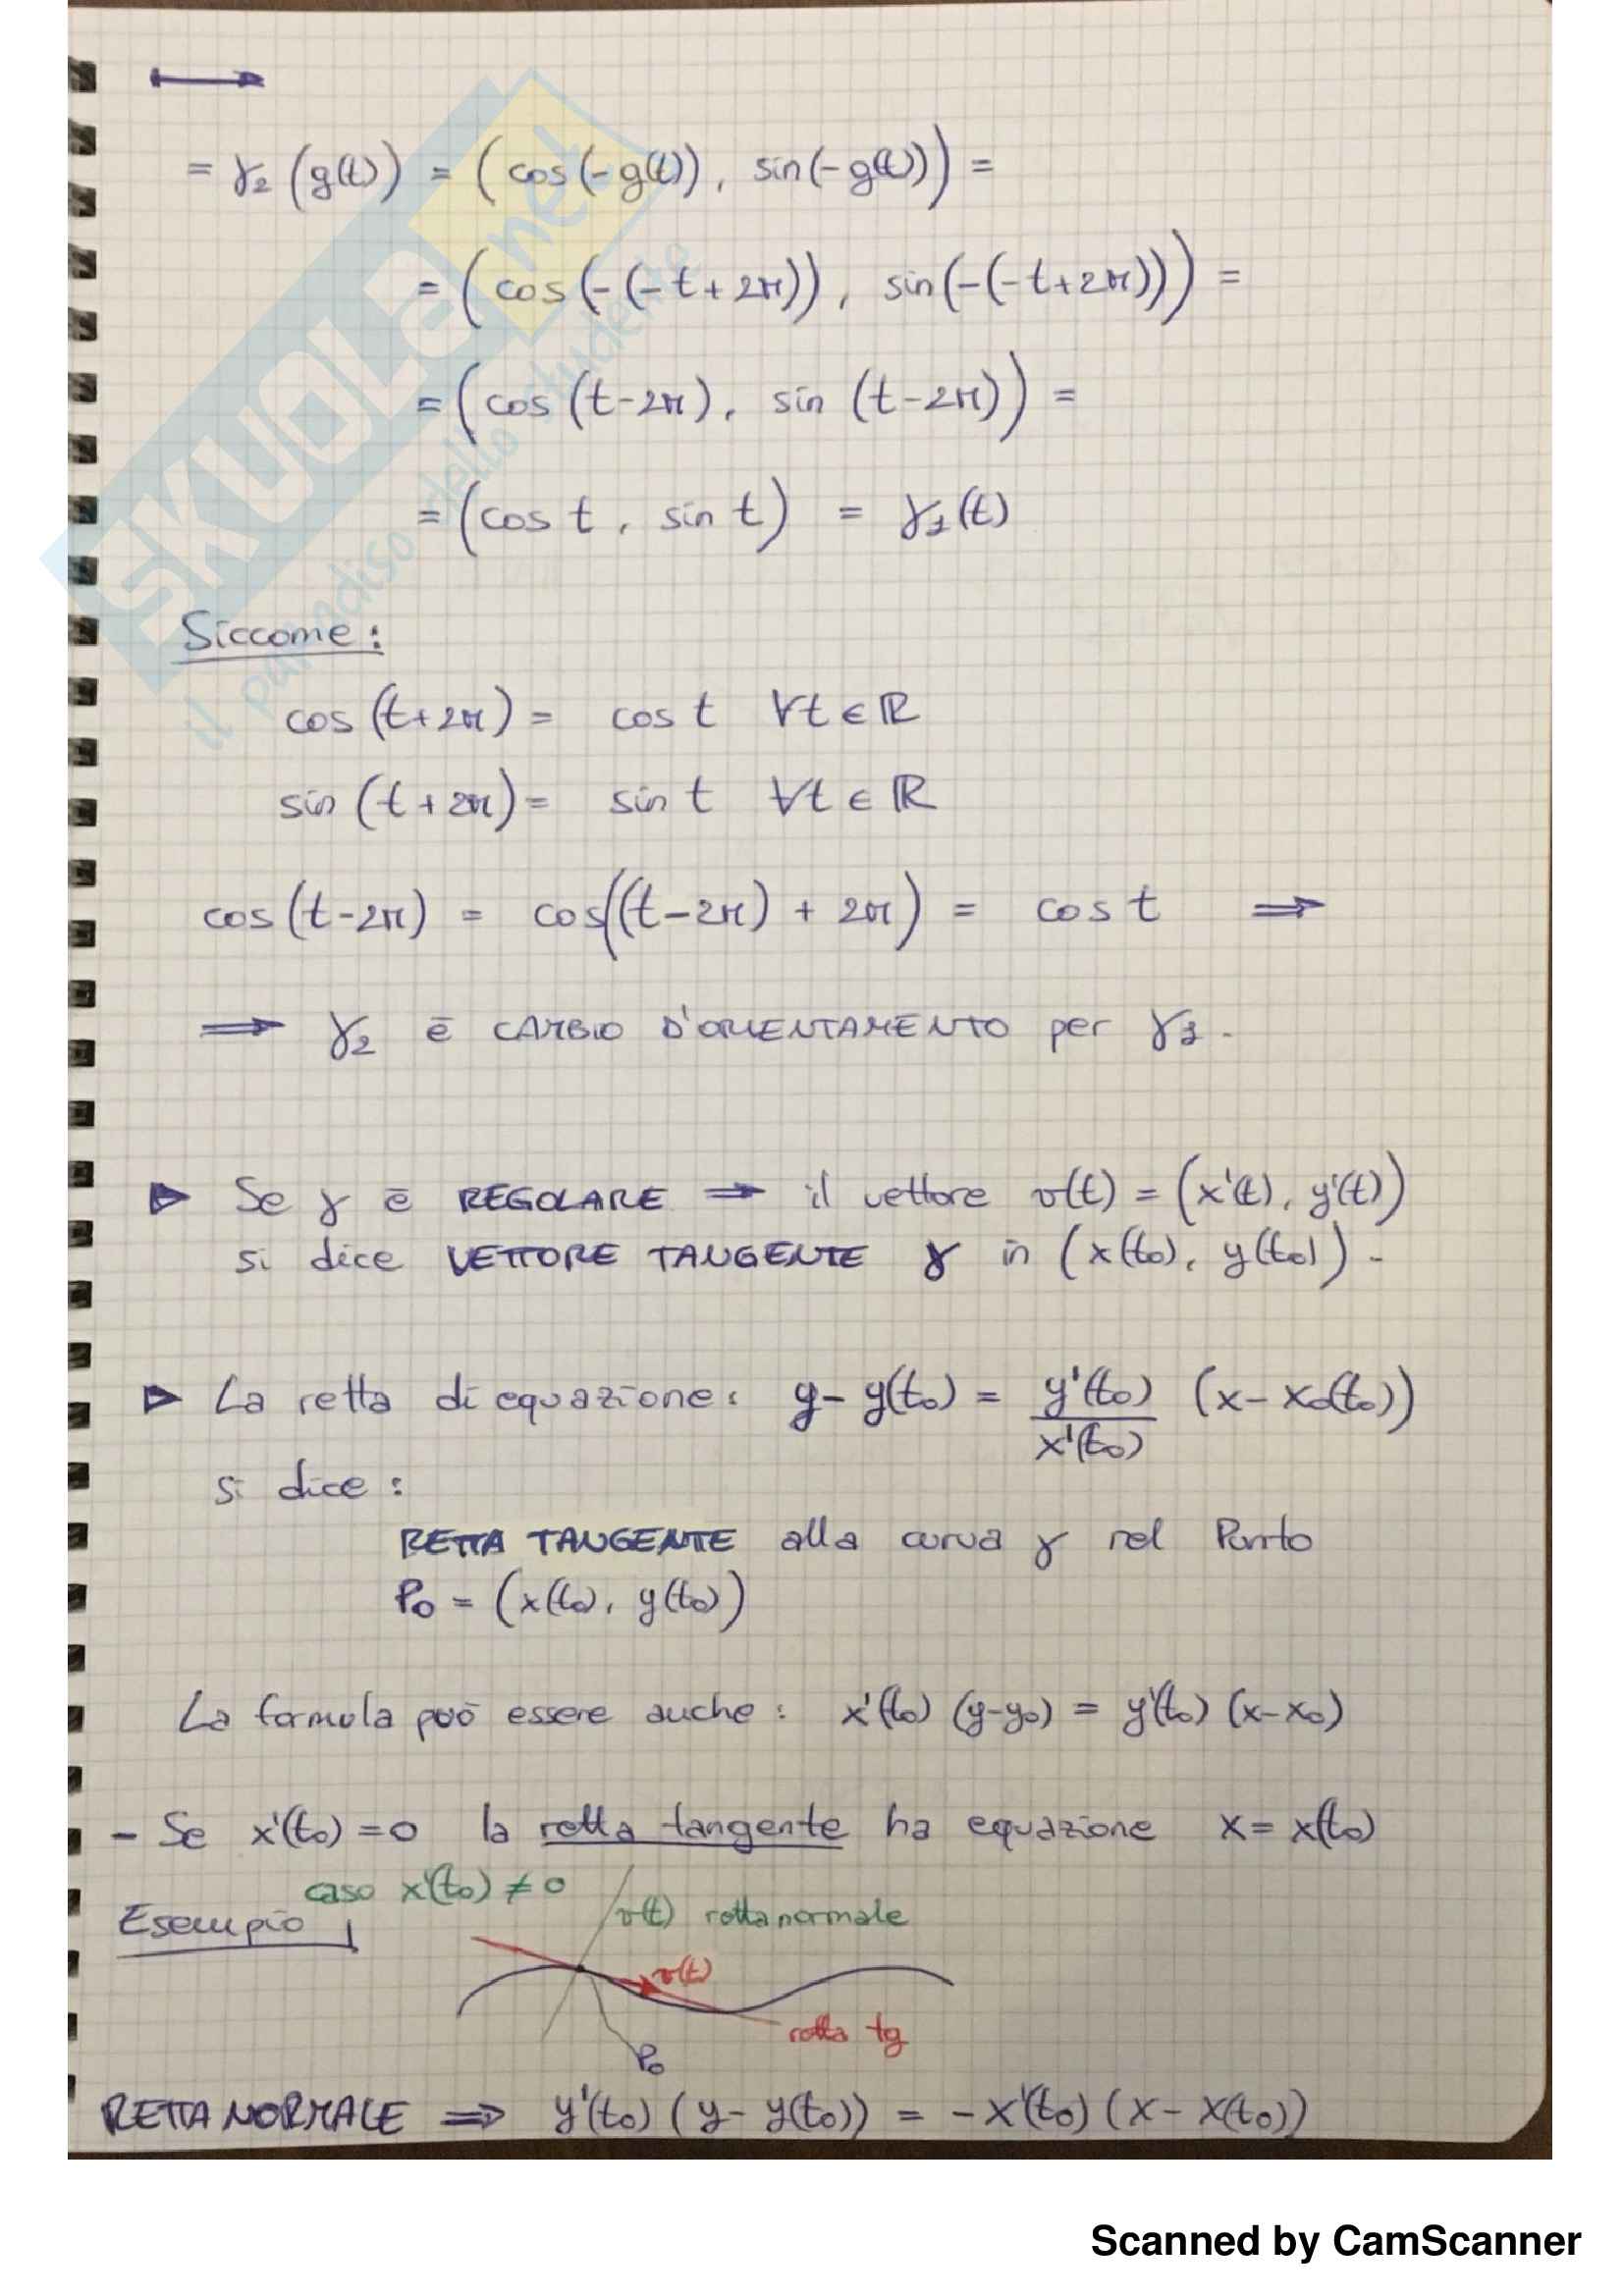 = γ₂ (g(t)) = (cos(-g(t)), sin(-g(t))) =
= (cos(-(-t+2π)), sin(-(-t+2π))) =
= (cos (t-2π), sin (t-2π)) =
= (cos t, sin t) = γ₁(t)
Siccome:
cos (t+2π) = cos t ∀t ∈ ℝ
sin (t+2π) = sin t ∀t ∈ ℝ
cos (t-2π) = cos((t-2π) + 2π) = cos t ⟹
⟹ γ₂ è CAMBIO D'ORIENTAMENTO per γ₁.
▶ Se γ è REGOLARE ⟹ il vettore v(t) = (x'(t), y'(t))
si dice VETTORE TANGENTE γ in (x(t₀), y(t₀)).
▶ La retta di equazione: y - y(t₀) = y'(t₀)/x'(t₀) (x - x₀(t₀))
si dice:
RETTA TANGENTE alla curva γ nel Punto
P₀ = (x(t₀), y(t₀))
La formula può essere anche: x'(t₀) (y-y₀) = y'(t₀) (x-x₀)
- Se x'(t₀) = 0 la retta tangente ha equazione x = x(t₀)
caso x'(t₀) ≠ 0
Esempio
v(t) retta normale
v(t)
retta tg
P₀
RETTA NORMALE ⟹ y'(t₀) (y - y(t₀)) = -x'(t₀) (x - x(t₀))
SKUOLA.net
il paradiso dello studente
Scanned by CamScanner